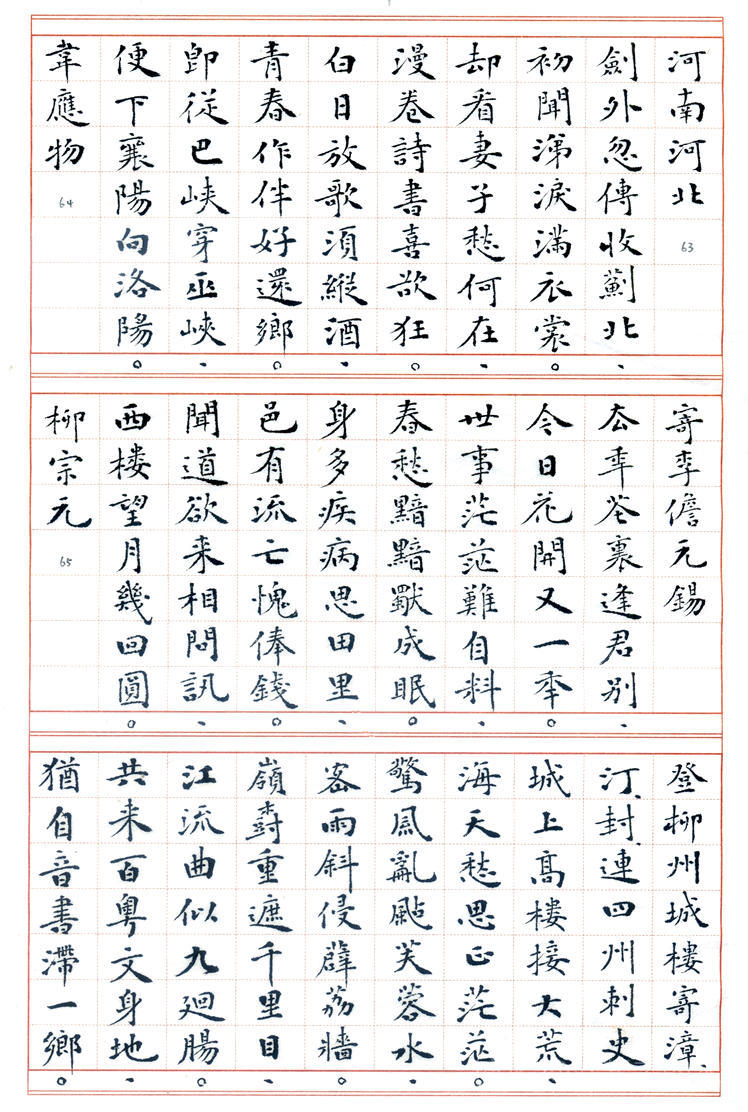 河南河北 63
劍外忽傳收薊北、
初聞涕淚滿衣裳。
却看妻子愁何在、
漫卷詩書喜欲狂。
白日放歌須縱酒、
青春作伴好還鄉。
卽從巴峽穿巫峽、
便下襄陽向洛陽。
韋應物 64
寄李儋元錫
去年花裏逢君別、
今日花開又一年。
世事茫茫難自料、
春愁黯黯獨成眠。
身多疾病思田里、
邑有流亡愧俸錢。
聞道欲来相問訊、
西樓望月幾回圓。
柳宗元 65
登柳州城樓寄漳、
汀、封、連四州刺史
城上高樓接大荒、
海天愁思正茫茫。
驚風亂颭芙蓉水、
密雨斜侵薜荔牆。
嶺樹重遮千里目、
江流曲似九廻腸。
共来百粵文身地、
猶自音書滯一鄉。